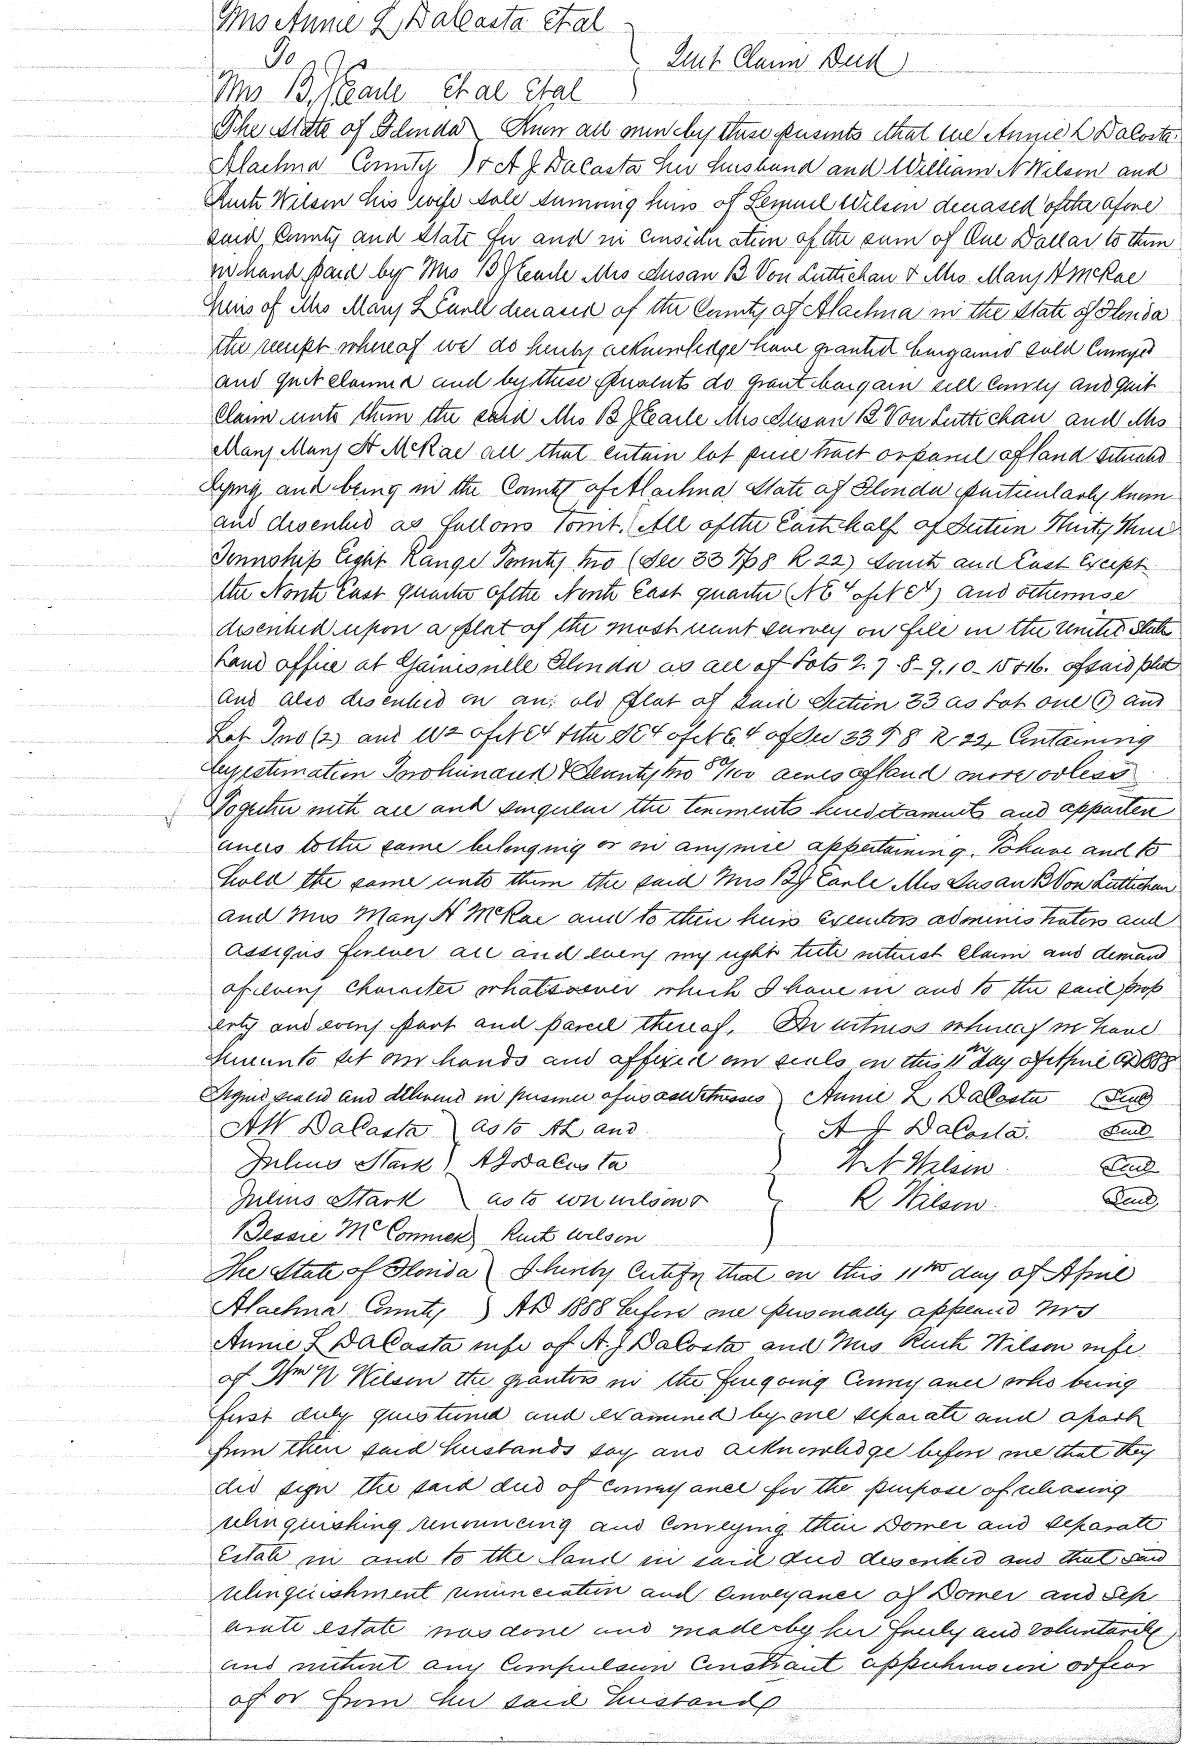 Mrs Annie L DaCosta et al
To
Quit Claim Deed
Mrs B J Earle et al et al
The State of Florida Know all men by these presents that we Annie L DaCosta
Alachua County & A J DaCosta her husband and William N Wilson and
Ruth Wilson his wife sole surviving heirs of Lemuel Wilson deceased of the afore
said County and State for and in consideration of the sum of One Dollar to them
in hand paid by Mrs B J Earle Mrs Susan B Von Luttichau & Mrs. Mary H McRae
heirs of Mrs Mary L Earle deceased of the County of Alachua in the State of Florida
the receipt whereof we do hereby acknowledge have granted bargained sold Conveyed
and quit claimed and by these presents do grant bargain sell Convey and quit
Claim unto them the said Mrs B J Earle Mrs Susan B Von Luttichau and Mrs
Mary Mary H McRae all that certain lot piece tract or parcel of land situated
lying and being in the County of Alachua State of Florida particularly known
and described as follows Towit. All of the East half of Section Thirty Three
Township Eight Range Twenty two (Sec 33 Tp 8 R 22) South and East Except
the North East quarter of the North East quarter (NE 4 of NE 4) and otherwise
described upon a plat of the most recent survey on file in the United State
Land office at Gainesville Florida as all of Lots 2. 7. 8 - 9. 10 - 15 & 16. of said plat
and also described on an old plat of said Section 33 as Lot one (1) and
Lot Two (2) and W2 of NE4 & the SE4 of NE4 of Sec 33 T 8 R 22, Containing
by estimation Two hundred & Seventy two 80/100 acres of land more or less
Together with all and singular the tenements hereditaments and apparten
ances to the same belonging or in anywise appertaining. To have and to
hold the same unto them the said Mrs B J Earle Mrs Susan B Von Luttichau
and Mrs Mary H McRae and to their heirs executors administrators and
assigns forever all and every my right title interest claim and demand
of every character whatsoever which I have in and to the said prop
erty and every part and parcel thereof. In witness whereof we have
hereunto set our hands and affixed our seals on this 11th day of April AD 1888
Signed sealed and delivered in presence of us as witnesses Annie L DaCosta Seal
AW DaCosta as to AL and A J DaCosta. Seal
Julius Stark AJ DaCosta W N Wilson Seal
Julius Stark as to W N Wilson & R Wilson. Seal
Bessie McCormick Ruth Wilson
The State of Florida I hereby Certify that on this 11th day of April
Alachua County AD 1888 before me personally appeared Mrs
Annie L DaCosta wife of A. J DaCosta and Mrs Ruth Wilson wife
of Wm N Wilson the grantors in the foregoing Conveyance who being
first duly questioned and examined by me separate and apart
from their said husbands say and acknowledge before me that they
did sign the said deed of conveyance for the purpose of releasing
relinquishing renouncing and Conveying their Dower and separate
Estate in and to the land in said deed described and that said
relinquishment renunciation and Conveyance of Dower and sep
arate estate was done and made by her freely and voluntarily
and without any Compulsion Constraint apprehension or fear
of or from her said husband